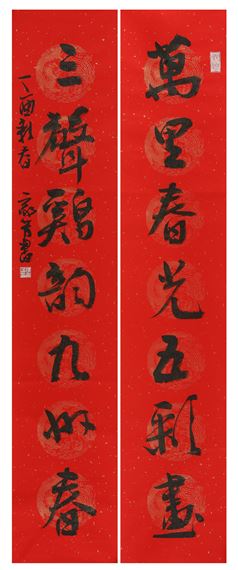 萬里春光五彩畫
三聲鷄韵九州春
丁酉新春